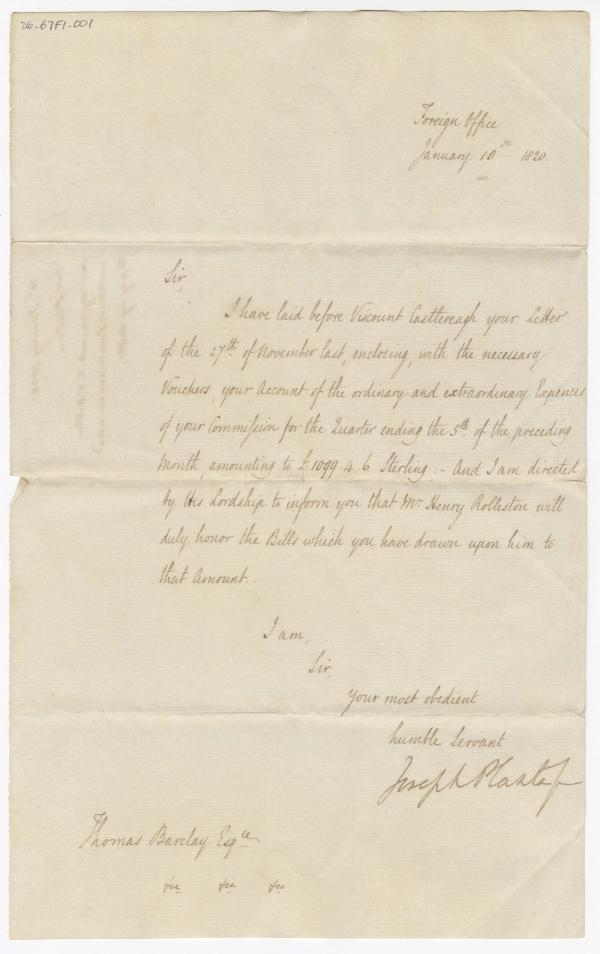 26-67F1-001
Foreign Office
January 10th 1820.
Sir,
I have laid before Viscount Castlereagh your Letter
of the 27th of November last, enclosing, with the necessary
Vouchers, your Account of the ordinary and extraordinary Expences
of your Commission for the Quarter ending the 5th of the preceding
Month, amounting to £1099. 4. 6 Sterling:- And I am directed
by His Lordship to inform you that Mr Henry Rolleston will
duly honor the Bills which you have drawn upon him to
that Amount.
I am,
Sir,
Your most obedient
humble Servant
Joseph Planta
Thomas Barclay Esqre
&ca &ca &ca